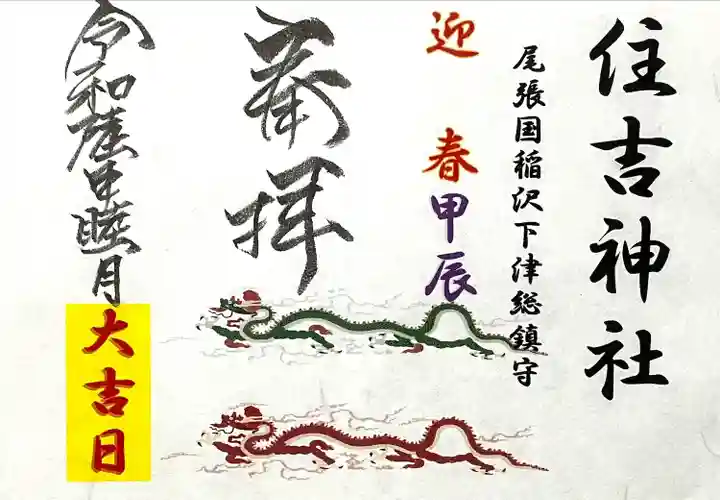 住吉神社
尾張国稲沢下津総鎮守
迎春
甲辰
奉拝
令和甲睦月
大吉日